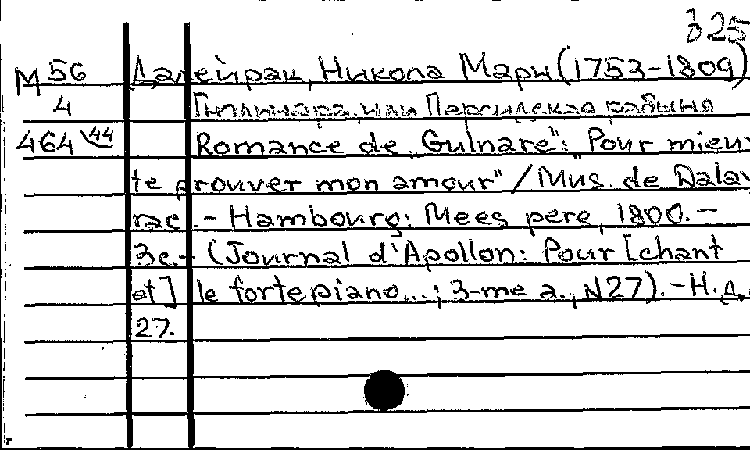 325
М 56 Далейрак, Никола Мари (1753-1809)
4 Гюльнара, или Персидская рабыня
464 44 Romance de „Gulnare": „Pour mieux
te prouver mon amour" / Mus. de Dalay
rac. - Hambourg: Mees pere, 1800. -
3с. - (Journal d'Apollon: Pour [chant
et] le fortepiano...; 3-me a., N27). - Н.д.
27.